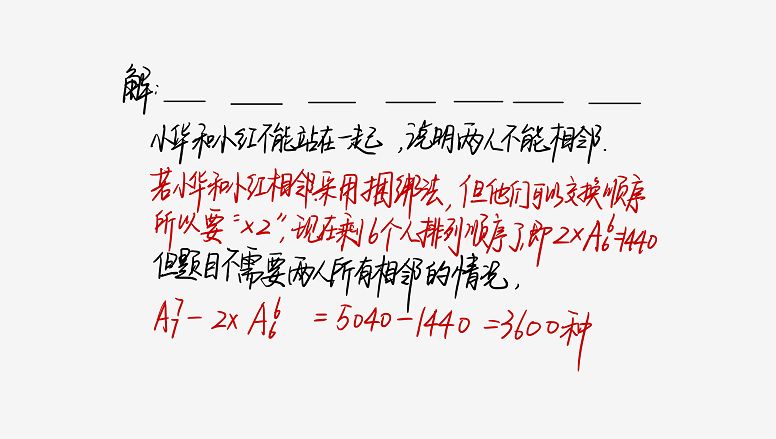 解:
小华和小红不能站在一起,说明两人不能相邻.
若小华和小红相邻采用捆绑法,但他们可以交换顺序
所以要“×2”,现在剩6个人排列顺序了,即2×A₆⁶=1440
但题目不需要两人所有相邻的情况,
A₇⁷-2×A₆⁶=5040-1440=3600种